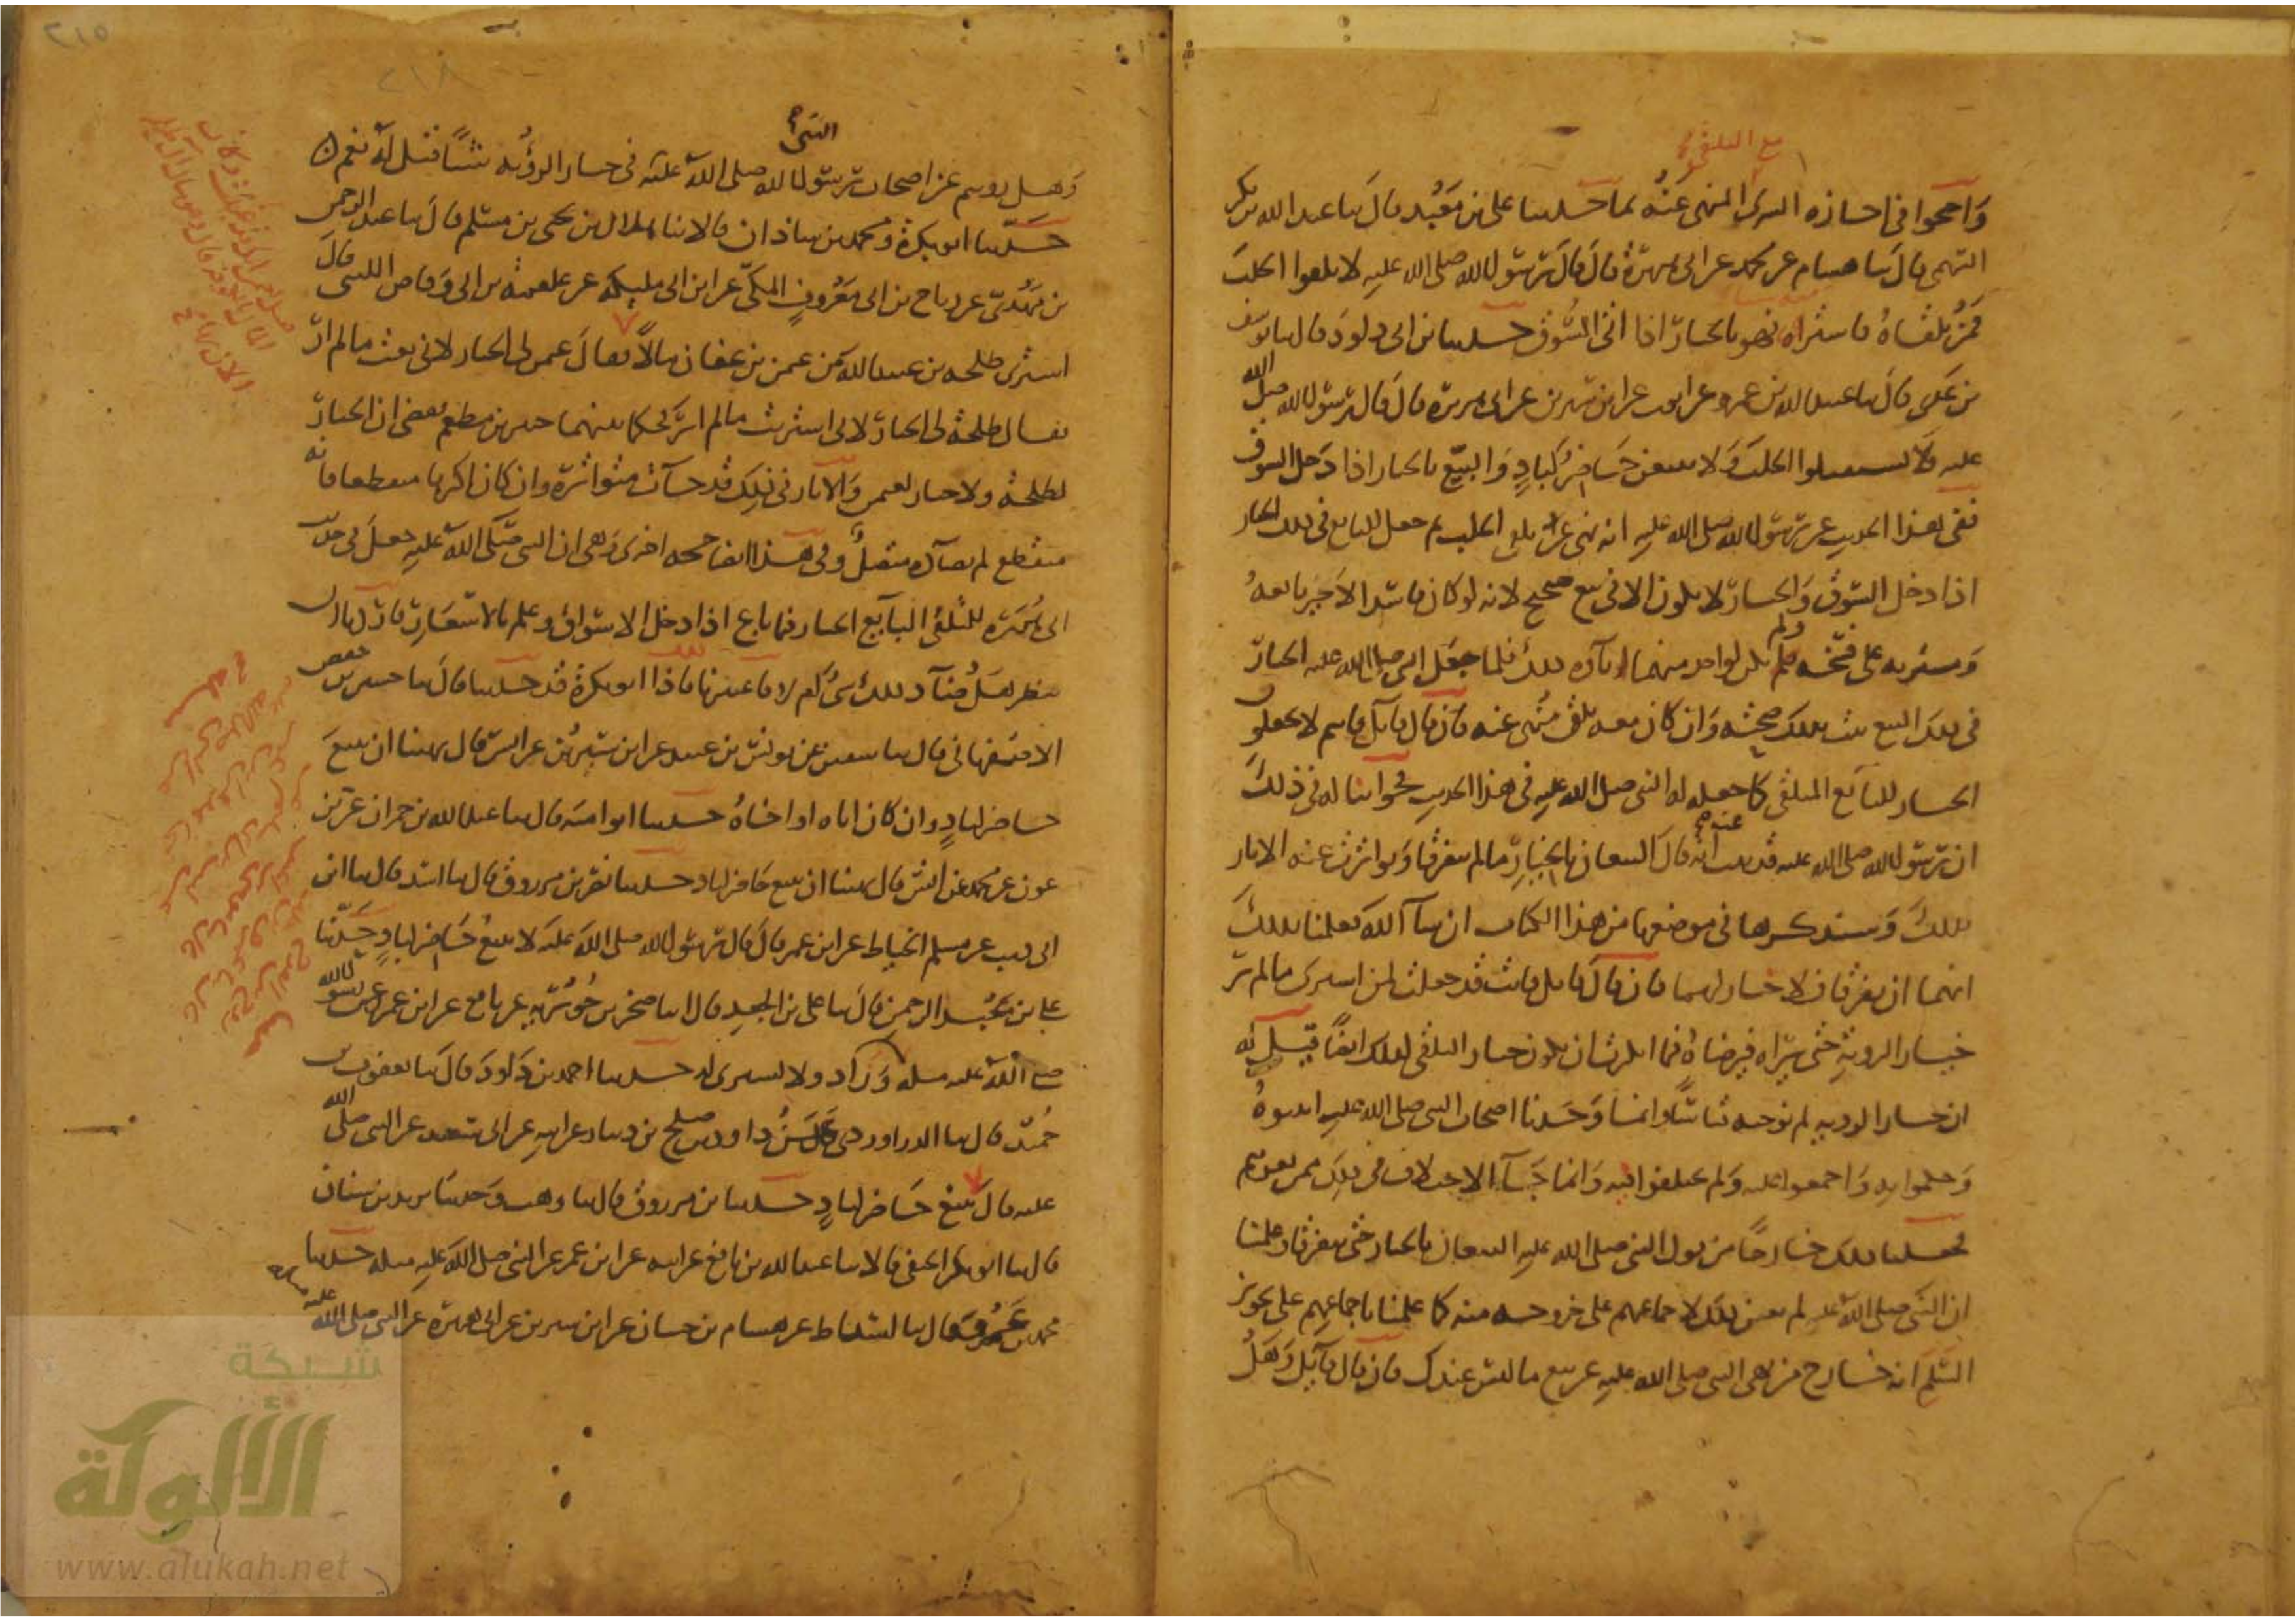 مع التلقي
واحتجوا في اجازه الشرى المنهي عنه بما حدثنا علي بن معبد قال نا عبد الله بن بكر
السهمي قال نا هشام عن محمد عن ابي هريرة قال قال رسول الله صلى الله عليه لا تلقوا الجلب
فمن تلقاه فاشتراه فهو بالخيار اذا اتى السوق حدثنا بن ابي داود قال نا يوسف
بن عدي قال نا عبيد الله بن عمرو عن ايوب عن ابن سيرين عن ابي هريرة قال قال رسول الله صلى الله
عليه لا تستقبلوا الجلب ولا يبيعن حاضر لباد والبيع بالخيار اذا دخل السوق
ففي هذا الحديث عن رسول الله صلى الله عليه انه نهى عن تلقي الجلب ثم جعل للبايع في ذلك الخيار
اذا دخل السوق والخيار لا يكون الا في بيع صحيح لانه لو كان فاسدا لاجبر بايعه
ومشتريه على فسخه ولم يكن لواحد منهما اباء ذلك فلما جعل النبي صلى الله عليه الخيار
في ذلك البيع ثبت بذلك صحته وان كان معه تلق منهى عنه فان قال قايل فانتم لا تجعلون
الخيار للبايع المتلقى كما جعله له النبي صلى الله عليه في هذا الحديث فجوابنا له في ذلك
ان رسول الله صلى الله عليه قد ثبت عنه انه قال البيعان بالخيار ما لم يتفرقا وتواترت عنه الاثار
بذلك وسنذكرها في موضعها من هذا الكتاب ان شا الله فعلمنا بذلك
انهما ان تفرقا فلا خيار لهما فان قال قايل فانت قد جعلت لمن اشترى ما لم ير
خيار الروية حتى يراه فيرضاه فما انكرت ان يكون خيار التلقي كذلك ايضا قيل له
ان خيار الروية لم نوجبه قياسا وانما وجدنا اصحاب النبي صلى الله عليه اثبتوه
وحكموا به واجمعوا عليه ولم يختلفوا فيه وانما جاء الاختلاف في ذلك ممن بعدهم
فجعلنا ذلك خارجا من قول النبي صلى الله عليه البيعان بالخيار حتى يتفرقا وعلمنا
ان النبي صلى الله عليه لم يعن ذلك لاجماعهم على خروجه منه كما علمنا باجماعهم على تجويز
السلم انه خارج من نهي النبي صلى الله عليه عن بيع ما ليس عندك فان قال قايل وهل
٢١٥
٢١٨
النبي
وهل رويتم عن اصحاب رسول الله صلى الله عليه في خيار الرؤية شيئا قيل له نعم
حدثنا ابو بكرة ومحمد بن شاذان قالا نا هلال بن يحيى بن مسلم قال نا عبد الرحمن
بن مهدي عن رباح بن ابي معروف المكي عن ابن ابي مليكة عن علقمة بن ابي وقاص الليثي قال
اشترى طلحة بن عبيد الله من عثمن بن عفان مالا فقال عثمن لي الخيار لاني بعت ما لم ار
فقال طلحة لي الخيار لاني اشتريت ما لم ار فحكما بينهما جبير بن مطعم فقضى ان الخيار
لطلحة ولا خيار لعثمن والاثار في ذلك قد جآت متواترة وان كان اكثرها منقطعا فانه
منقطع لم يضاده متصل وفي هذا ايضا حجة اخرى وهي ان النبي صلى الله عليه جعل في حديث
ابي هريرة للتلقي البايع الخيار فيما باع اذا دخل الاسواق وعلم بالاسعار فاردنا ان
ننظر هل ضاد ذلك شي ام لا فاعتبرنا فاذا ابو بكرة قد حدثنا قال نا حسين بن حفص
الاصفهاني قال نا سفين عن يونس بن عبيد عن ابن سيرين عن انس قال نهينا ان يبيع
حاضر لباد وان كان اباه او اخاه حدثنا ابو امية قال نا عبد الله بن حمران عن بن
عون عن محمد عن انس قال نهينا ان يبيع حاضر لباد حدثنا نصر بن مرزوق قال نا اسد قال نا ابن
ابي ذيب عن مسلم الخياط عن ابن عمر قال قال رسول الله صلى الله عليه لا يبيع حاضر لباد حدثنا
علي بن عبد الرحمن قال نا علي بن الجعد قال انا صخر بن جويرية عن نافع عن ابن عمر عن رسول الله
صلى الله عليه مثله وزاد ولا يشتري له حدثنا احمد بن داود قال نا يعقوب بن
حميد قال نا الدراوردي عن داود بن صالح بن دينار عن ابيه عن ابي سعيد عن النبي صلى الله
عليه قال لا يبيع حاضر لباد حدثنا بن مرزوق قال نا وهب وحدثنا يزيد بن سنان
قال نا ابو بكر الحنفي قالا نا عبد الله بن نافع عن ابيه عن ابن عمر عن النبي صلى الله عليه مثله حدثنا
محمد بن عمرو قال نا اسباط عن هشام بن حسان عن ابن سيرين عن ابي هريرة عن النبي صلى الله عليه مثله
شبكة
الألوكة
www.alukah.net